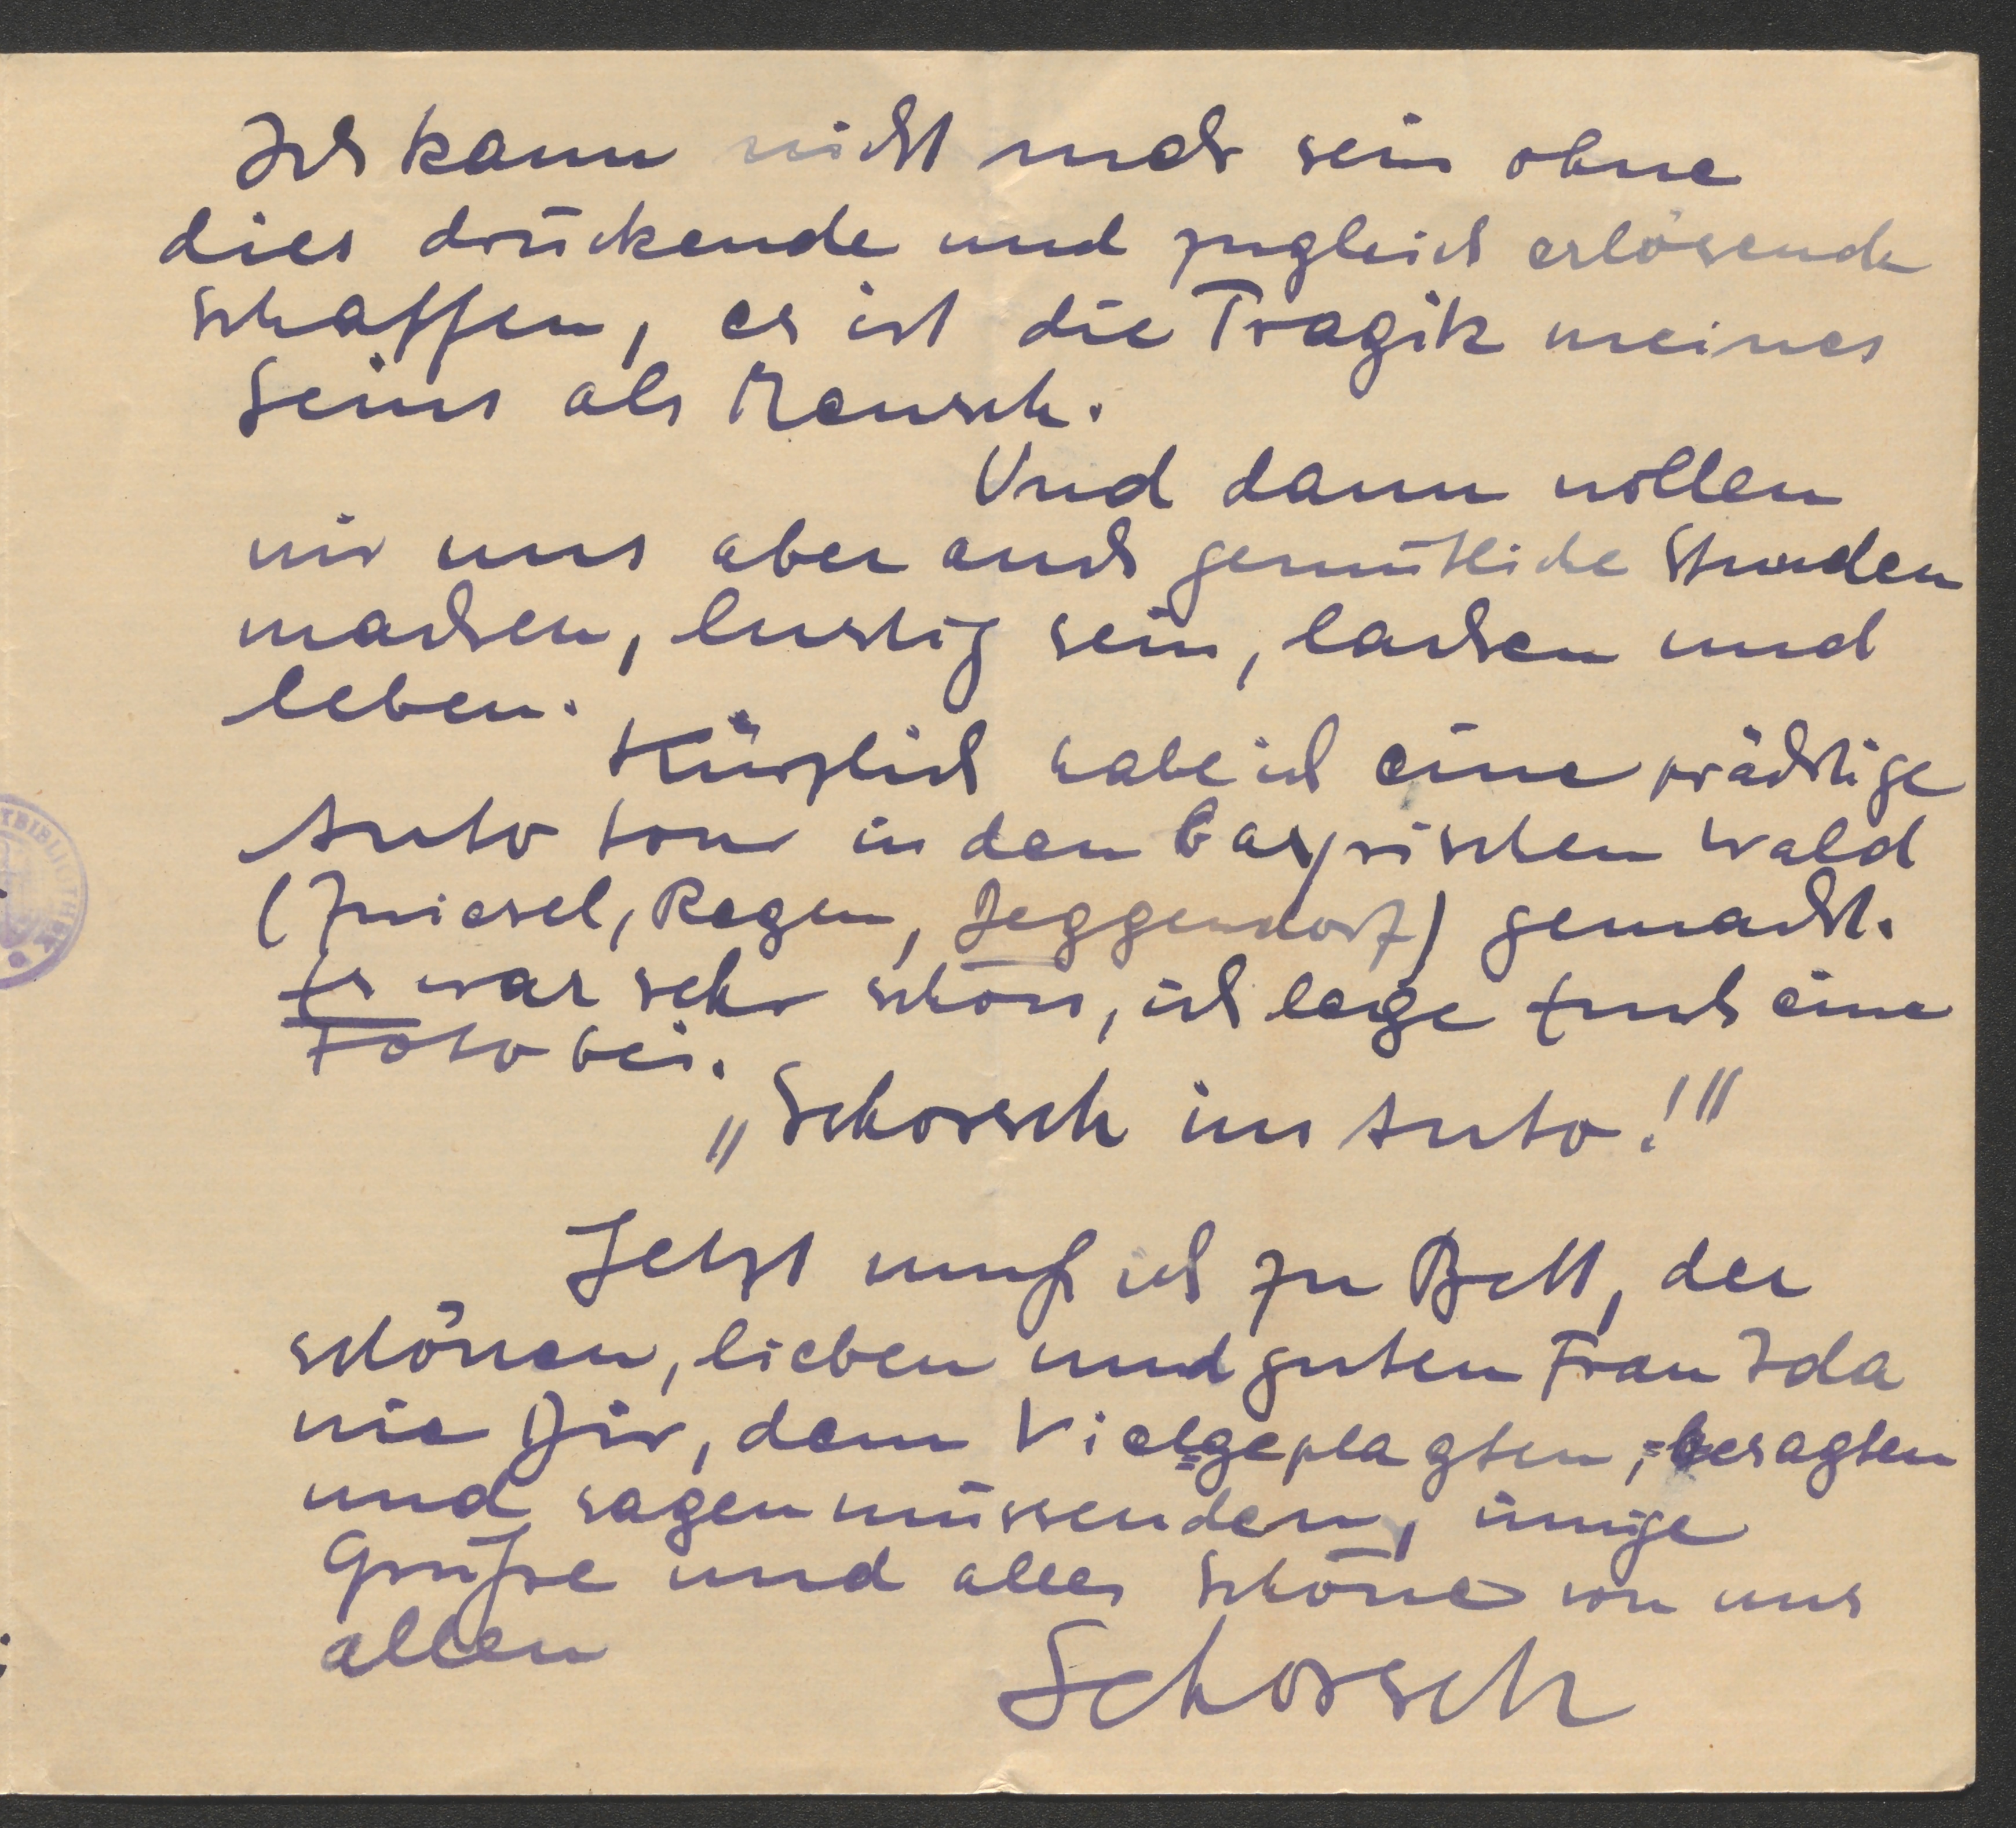 Ich kann nicht mehr sein ohne
dies drückende und zugleich erlösende
Schaffen, es ist die Tragik meines
Seins als Mensch.
Und dann wollen
wir uns aber auch gemütliche Stunden
machen, lustig sein, lachen und
leben.
Kürzlich habe ich eine prächtige
Auto tour in den bayrischen Wald
(Zwiesel, Regen, Deggendorf) gemacht.
Es war sehr schön, ich lege Euch eine
Foto bei.
„Schorsch im Auto!"
Jetzt muß ich zu Bett, der
schönen, lieben und guten Frau Ida
wie Dir, dem Vielgeplagten, =besagten
und sagenmüssenden, innige
Grüße und alles Schöne von uns
allen
Schorsch